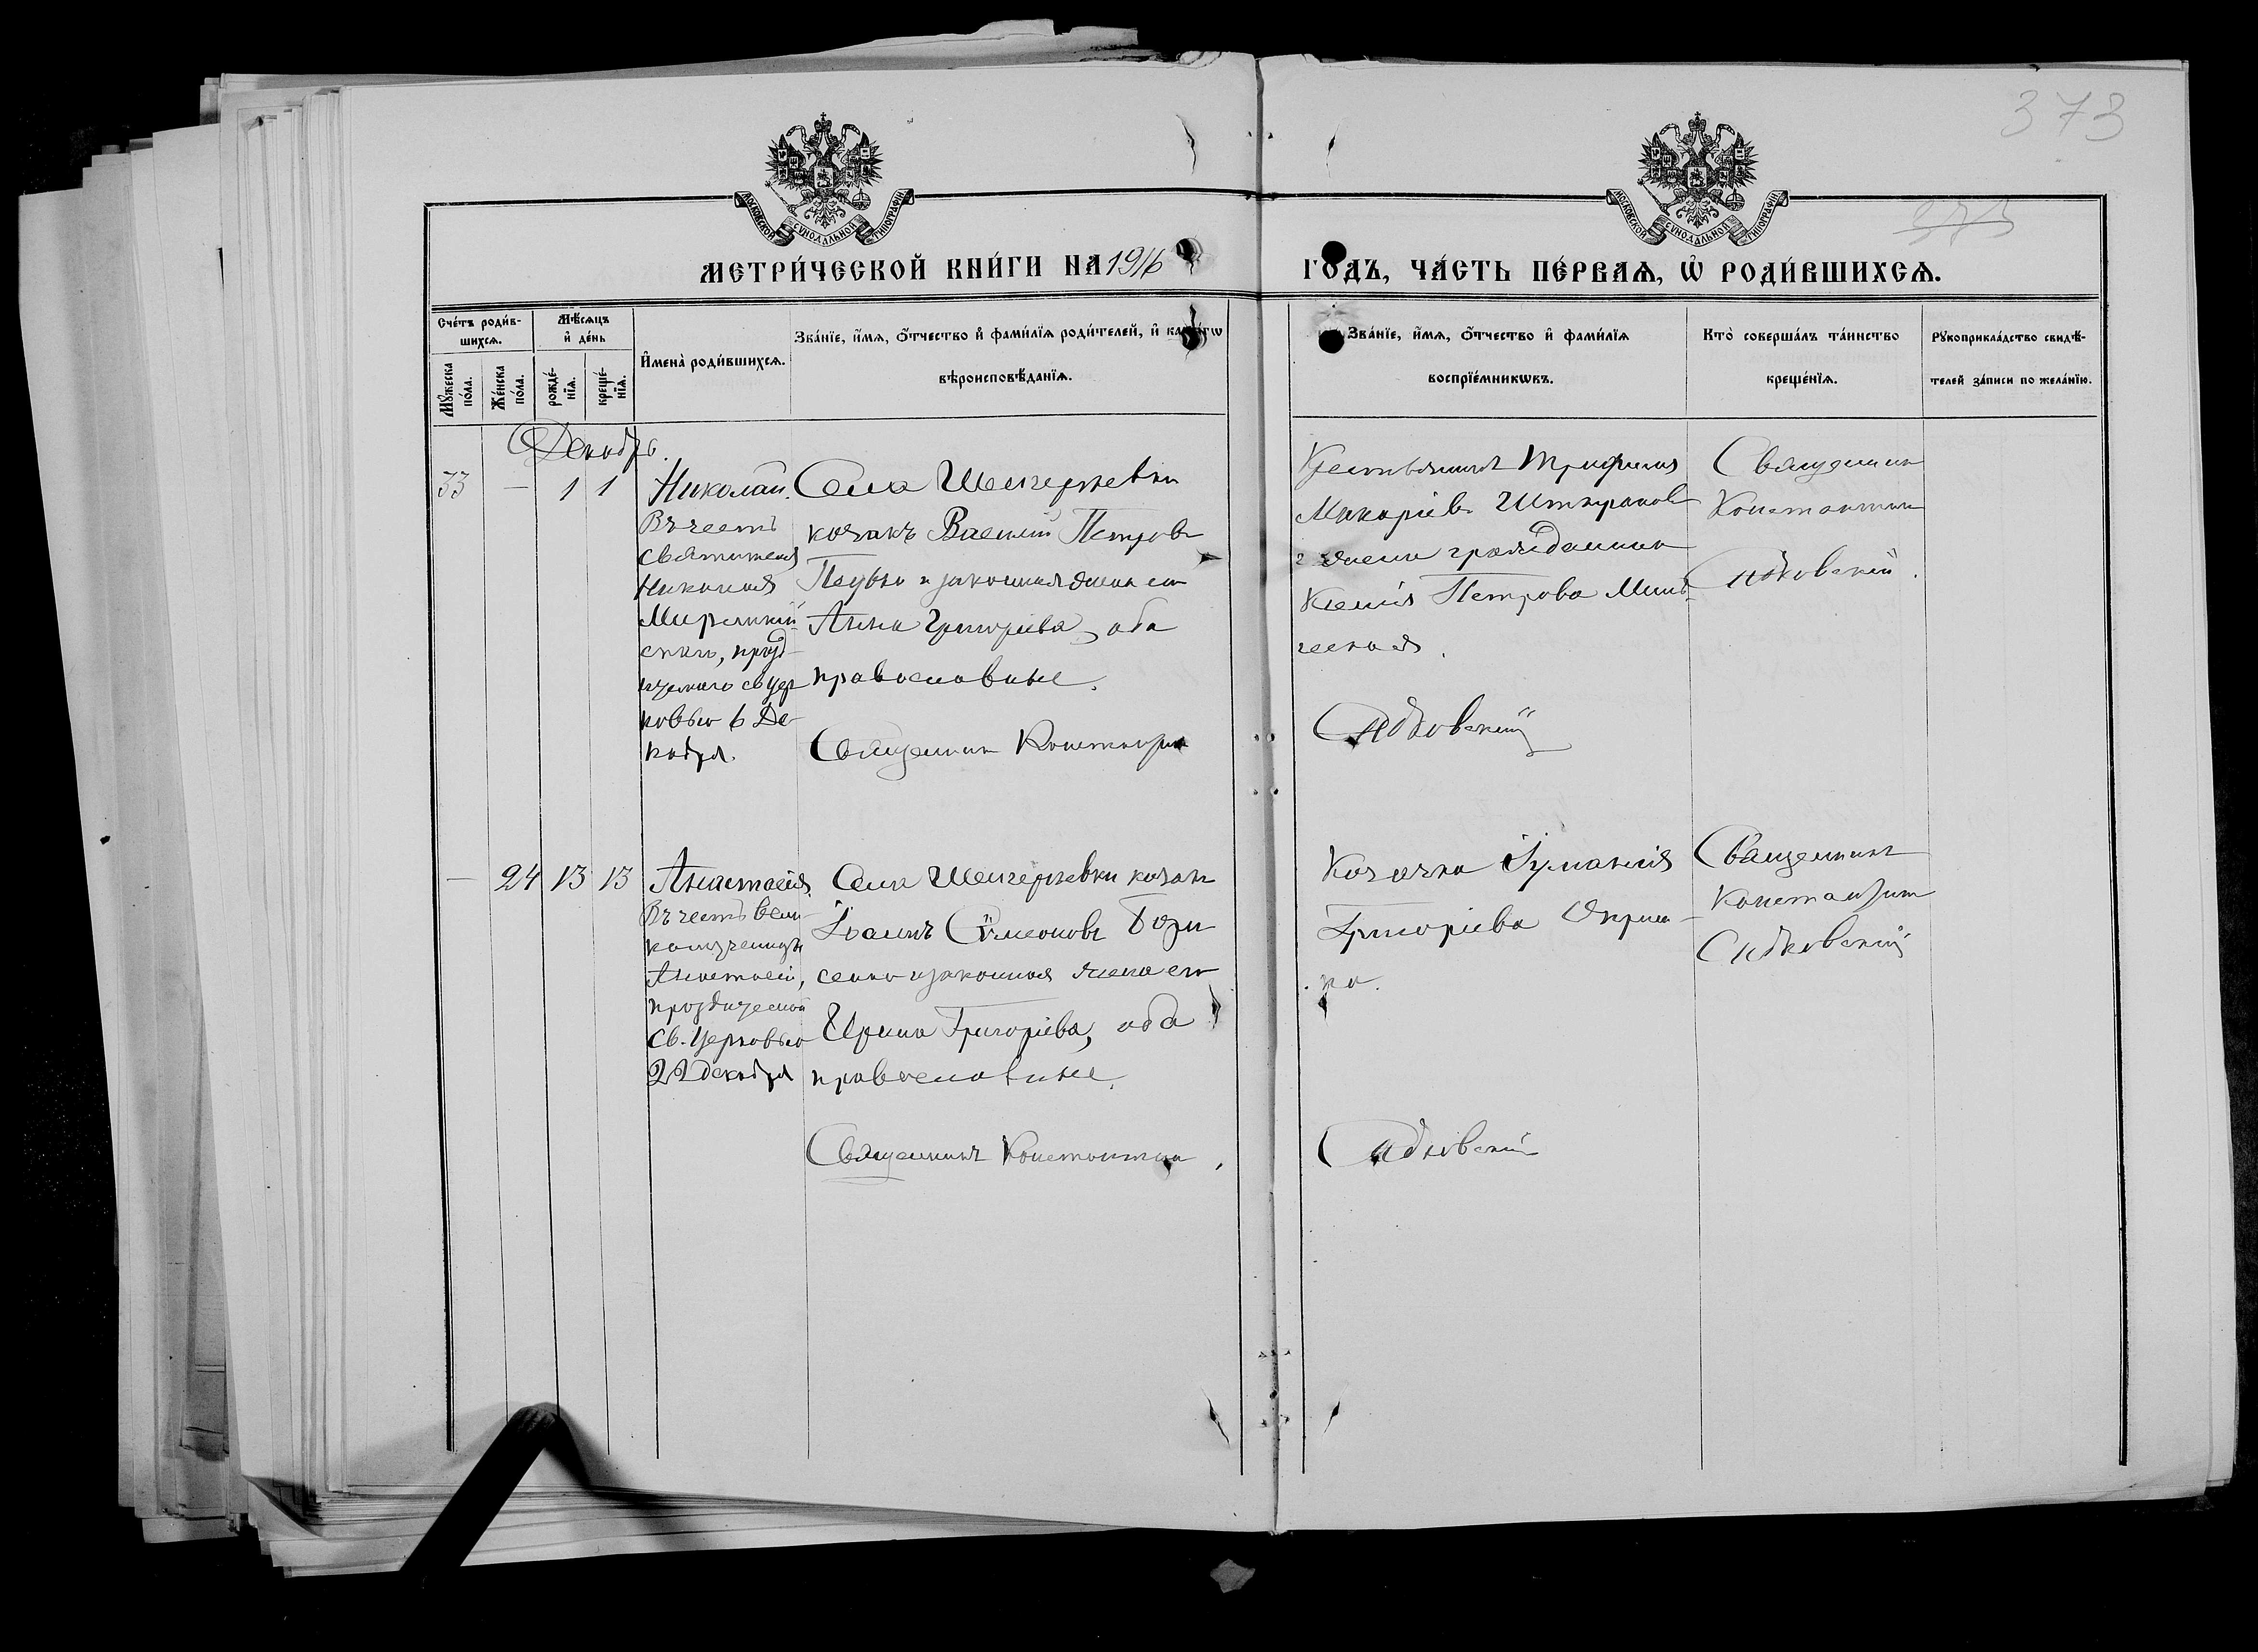 373
МОСКОВСКОЙ СѴНОДАЛЬНОЙ ТИПОГРАФІИ
МОСКОВСКОЙ СѴНОДАЛЬНОЙ ТИПОГРАФІИ
МЕТРИ́ЧЕСКОЙ КНИ́ГИ НА 1916
ГОДЪ, ЧА́СТЬ ПЕ́РВАѦ, Ѽ РОДИ́ВШИХСѦ.
Сче́тъ роди́в-
шихсѧ.
Мѣ́сѧцъ
и҆ де́нь
Мꙋ́жеска по́ла.
Же́нска по́ла.
рожде́-
нїѧ.
креще́-
нїѧ.
И҆мена̀ роди́вшихсѧ.
Зва́нїе, и҆́мѧ, ѻ҆́тчество и҆ фами́лїѧ роди́телей, и҆
вѣроисповѣ́данїѧ.
Зва́нїе, и҆́мѧ, ѻ҆́тчество и҆ фами́лїѧ
воспрїе́мникѡвъ.
Кто̀ соверша́лъ та́инство
креще́нїѧ.
Рꙋкоприкла́дство свидѣ́-
телей за́писи по жела́нїю.
Декабрь.
33 — 1 1
Николай.
Въ честь
Святителя
Николая
Мирликій-
скаго, празд-
нуемаго св. цер
ковью 6 Де-
кабря.
Села
козакъ Василій Петровъ
и законная жена его
Анна Григоріева, оба
православные.
Священникъ Константинъ
Крестьянинъ
Макаріевъ
и жена гражданина
Ксенія Петрова
Садковскій
Священникъ
Константинъ
Садковскій.
— 24 13 13
Анастасія
Въ честь вели-
комученицы
Анастасіи,
празднуемой
Св. Церковью
22 декабря
Села козакъ
Іоаннъ Сѵмеоновъ Бори
сенко и законная жена его
Ирина Григоріева, оба
православные.
Священникъ Константинъ
Козачка
Григоріева
ка.
Садковскій
Священникъ
Константинъ
Садковскій